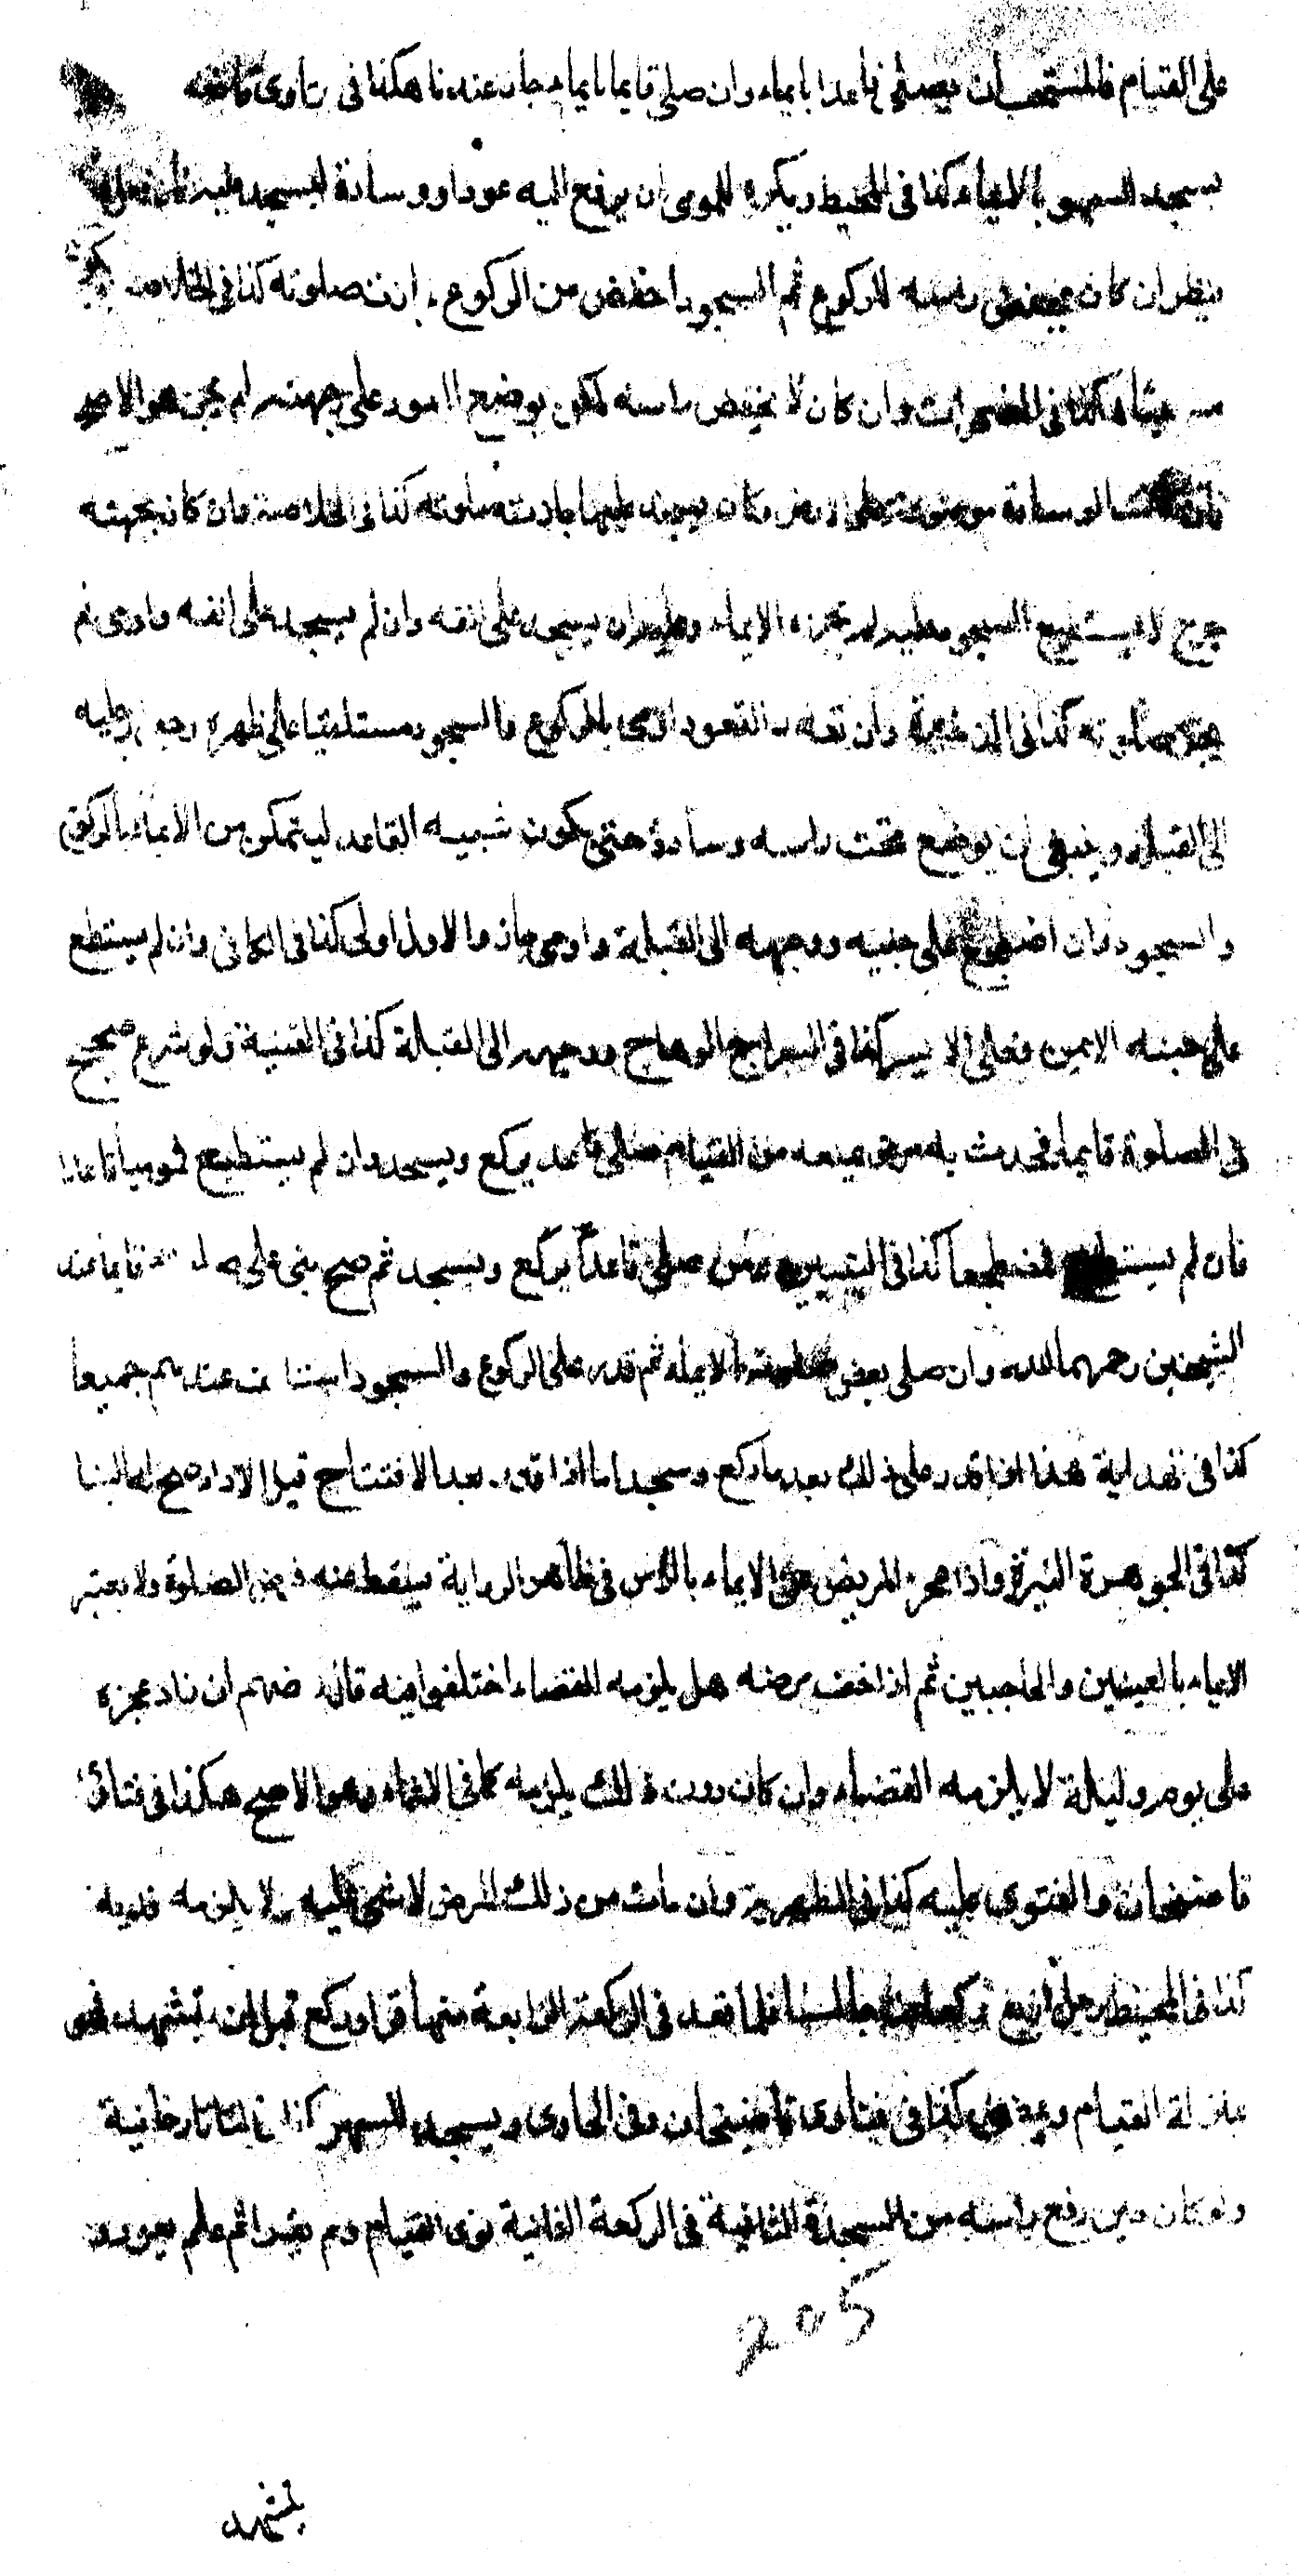 على القيام فالمستحب ان يصلي قاعدا بايماء وان صلى قايما بايماء جاز عندنا هكذا فى فتاوى قاضيخان
يسجد للسهو بالايماء كذا فى المحيط ويكره للمومى ان يرفع اليه عودا او وسادة ليسجد عليه فان فعل
ينظر ان كان يخفض راسه للركوع ثم السجود اخفض من الركوع جازت صلوته كذا فى الخلاصة
مسيئا هكذا فى المضمرات وان كان لا يخفض راسه لكن يوضع العود على جبهته لم يجز هو الاصح
فان كانت الوسادة موضوعة على الارض وكان يسجد عليها جازت صلوته كذا فى الخلاصة وان كان بجبهته
جرح لا يستطيع السجود عليه لم يجزه الايماء وعليه ان يسجد على انفه وان لم يسجد على انفه واومى لم
يجز صلوته كذا فى الذخيرة وان تعذر القعود اومى بالركوع والسجود مستلقيا على ظهره وجعل رجليه
الى القبلة وينبغى ان يوضع تحت راسه وسادة حتى يكون شبيه القاعد ليتمكن من الايماء بالركوع
والسجود وان اضطجع على جنبيه ووجهه الى القبلة واومى جاز والاول اولى كذا فى الكافى وان لم يستطع
على جنبه الايمن فعلى الايسر كذا فى السراج الوهاج ووجهه الى القبلة كذا فى القنية ولو شرع صحيح
فى الصلوة قايما فحدث به مرض يمنعه من القيام صلى قاعدا يركع ويسجد وان لم يستطيع فوميا قاعدا
فان لم يستطع فمضطجعا كذا فى التبيين ومن صلى قاعدا يركع ويسجد ثم صح بنى على صلوته قايما عند
الشيخين رحمهما الله وان صلى بعض صلوته بالايماء ثم قدر على الركوع والسجود استانف عندهم جميعا
كذا فى الهداية هذا اذا قدر على ذلك بعد ما ركع وسجد اما اذا قدر بعد الافتتاح قبل الاداء صح له البنا
كذا فى الجوهرة النيرة واذا عجز المريض عن الايماء بالراس فى ظاهر الرواية يسقط عنه فرض الصلوة ولا يعتبر
الايماء بالعينين والحاجبين ثم اذا خف مرضه هل يلزمه القضاء اختلفوا فيه قال بعضهم ان زاد عجزه
على يوم وليلة لا يلزمه القضاء وان كان دون ذلك يلزمه كما فى الاغماء وهو الاصح هكذا فى فتاوى
قاضيخان والفتوى عليه كذا فى الظهيرية وان مات من ذلك المرض لا شى عليه ولا يلزمه فدية
كذا فى المحيط رجل اربع ركعات جالسا فلما قعد فى الركعة الرابعة منها قرا وركع قبل ان يتشهد فهو
بمنزلة القيام ويمضى كذا فى فتاوى قاضيخان وفى الحاوى ويسجد للسهو كذا فى التاتارخانية
ولو كان حين رفع راسه من السجدة الثانية فى الركعة الثانية نوى القيام ولم يقرا ثم علم يعود و
205
يتشهد